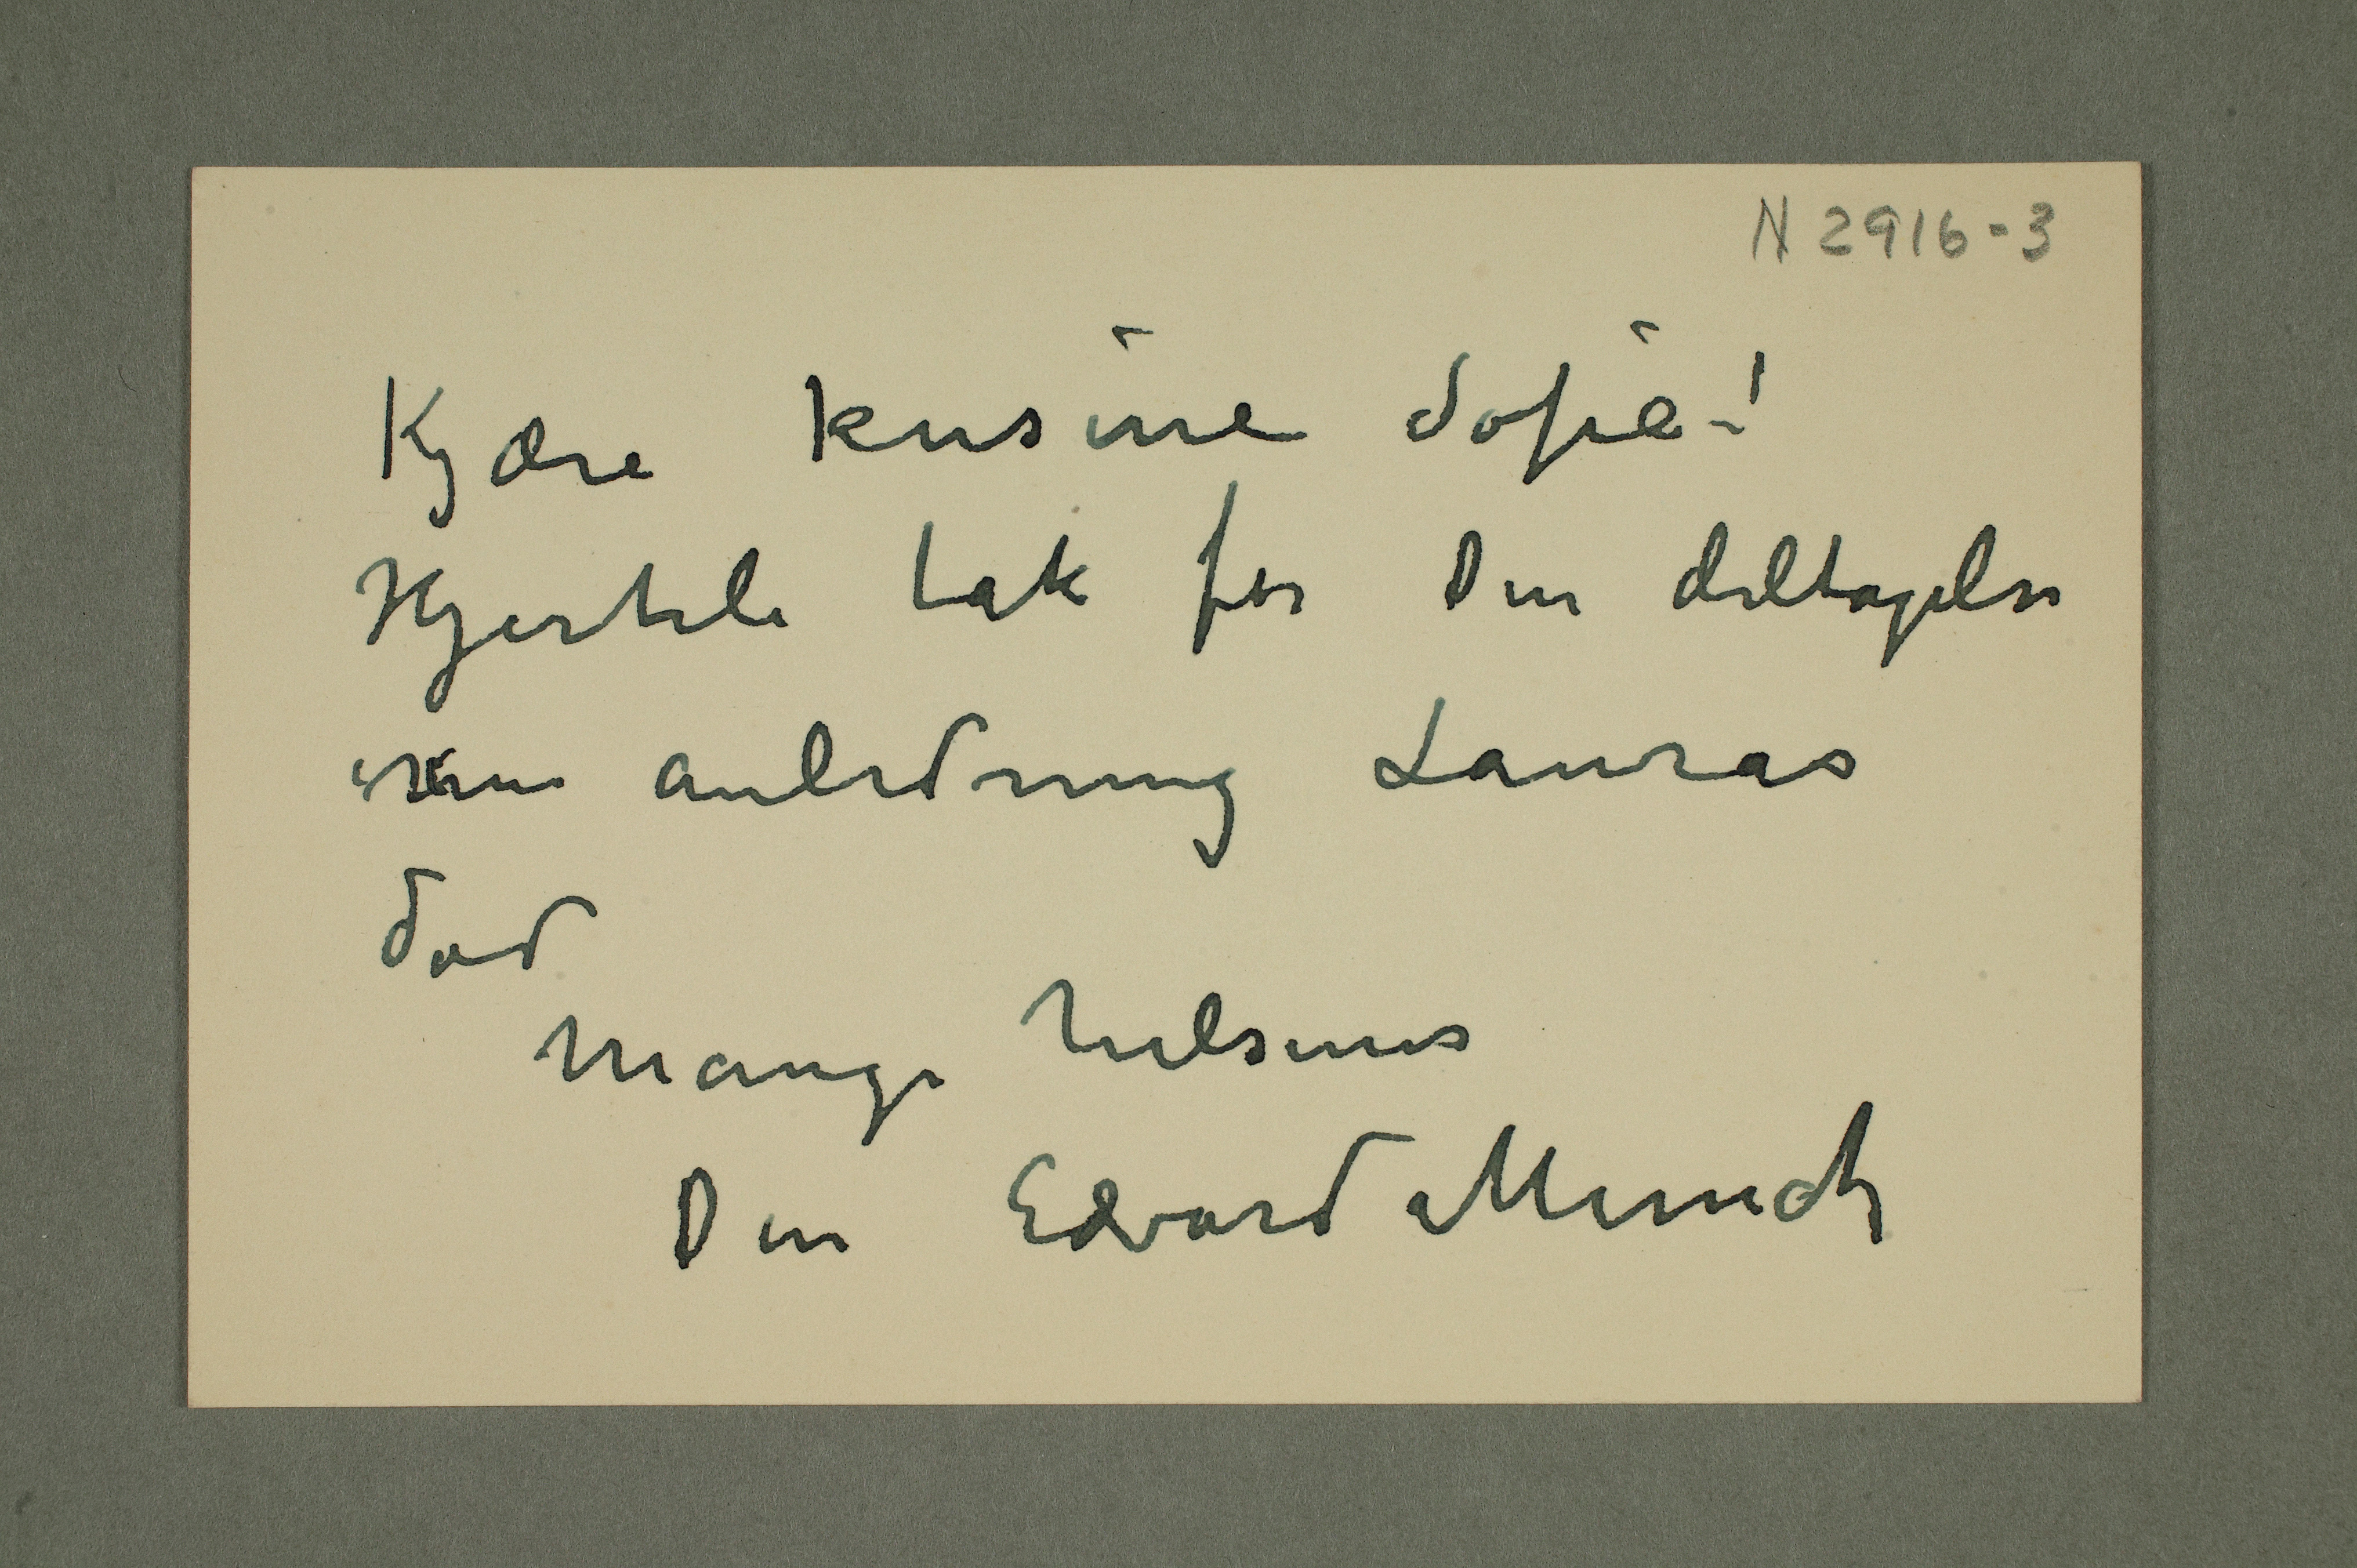 N 2916-3
Kjære kusine Sofie-!
Hjerteli tak for Din deltagelse
anledning Lauras
død
Mange hilsener
Din Edvard Munch